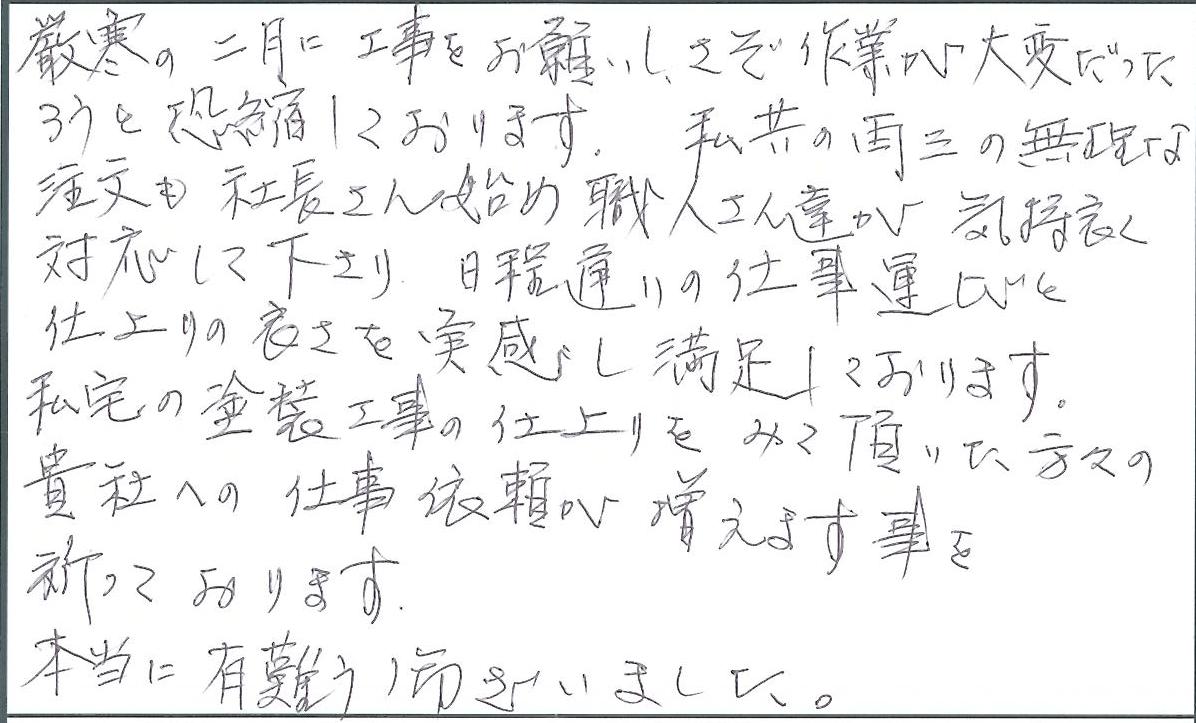 厳寒の二月に工事をお願いし、さぞ作業が大変だった
ろうと恐縮しております。 私共の再三の無理な
注文も社長さん始め職人さん達が気持良く
対応して下さり 日程通りの仕事運びと
仕上りの良さを実感し満足しております。
私宅の塗装工事の仕上りをみて頂いた方々の
貴社への仕事依頼が増えます事を
祈っております。
本当に有難う御ざいました。